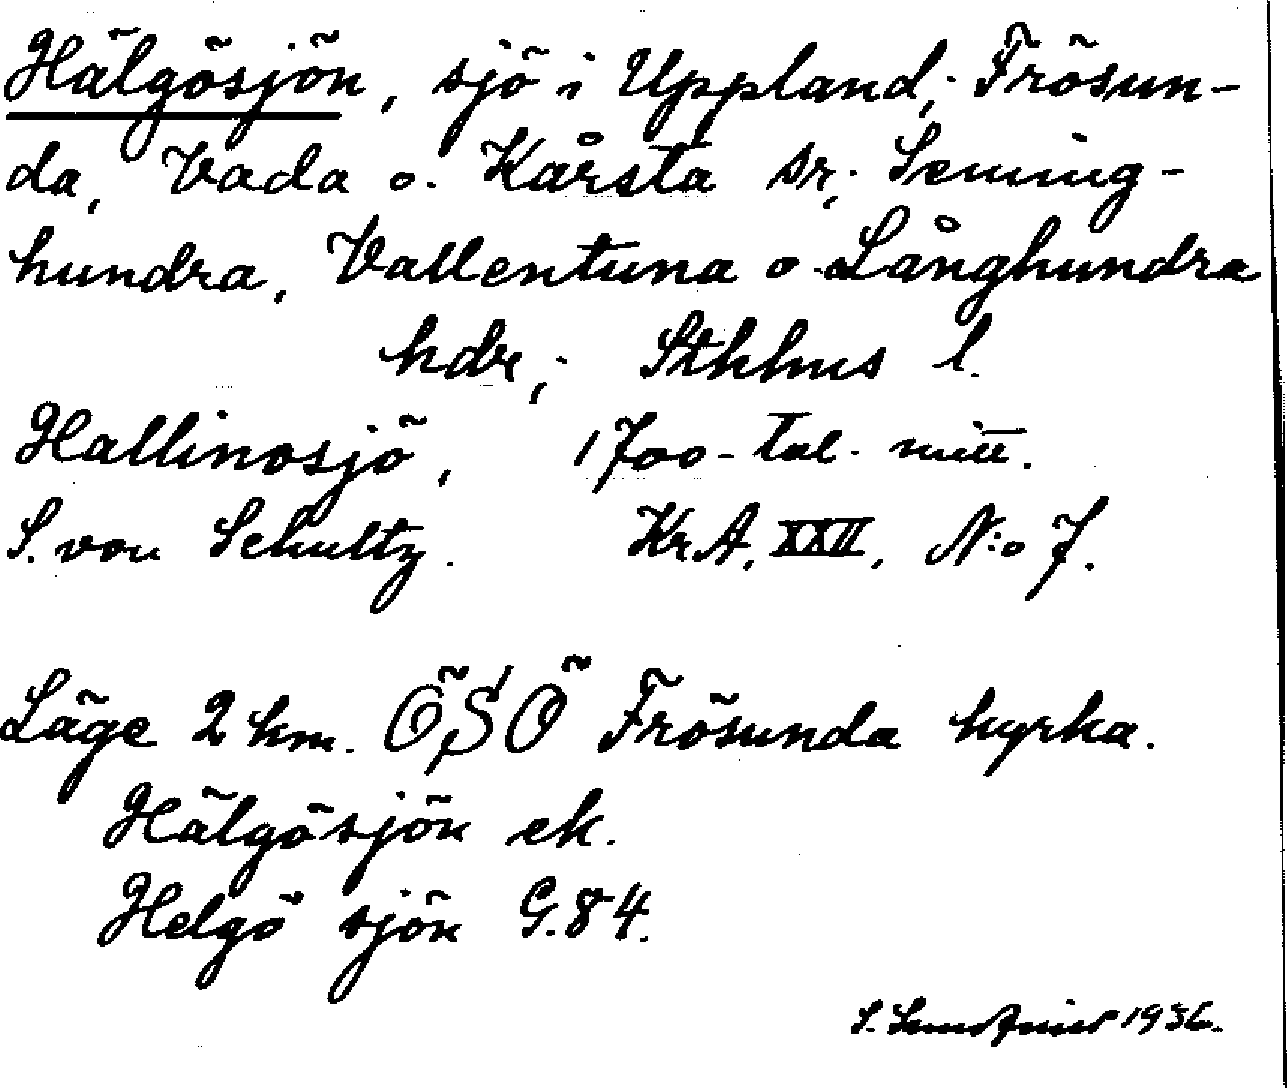 Hälgösjön, sjö i Uppland; Frösun-
da, Vada o. Kårsta sr; Seming-
hundra, Vallentuna o Långhundra
hdr; Sthlms l.
Hallinosjö, 1700-tal. mitt.
S. von Schultz. Kr.A. XXII, N:o 7.
Läge 2 km. ÖSÖ Frösunda kyrka.
Hälgösjön ek.
Helgö sjön G.84.
S. 1936.